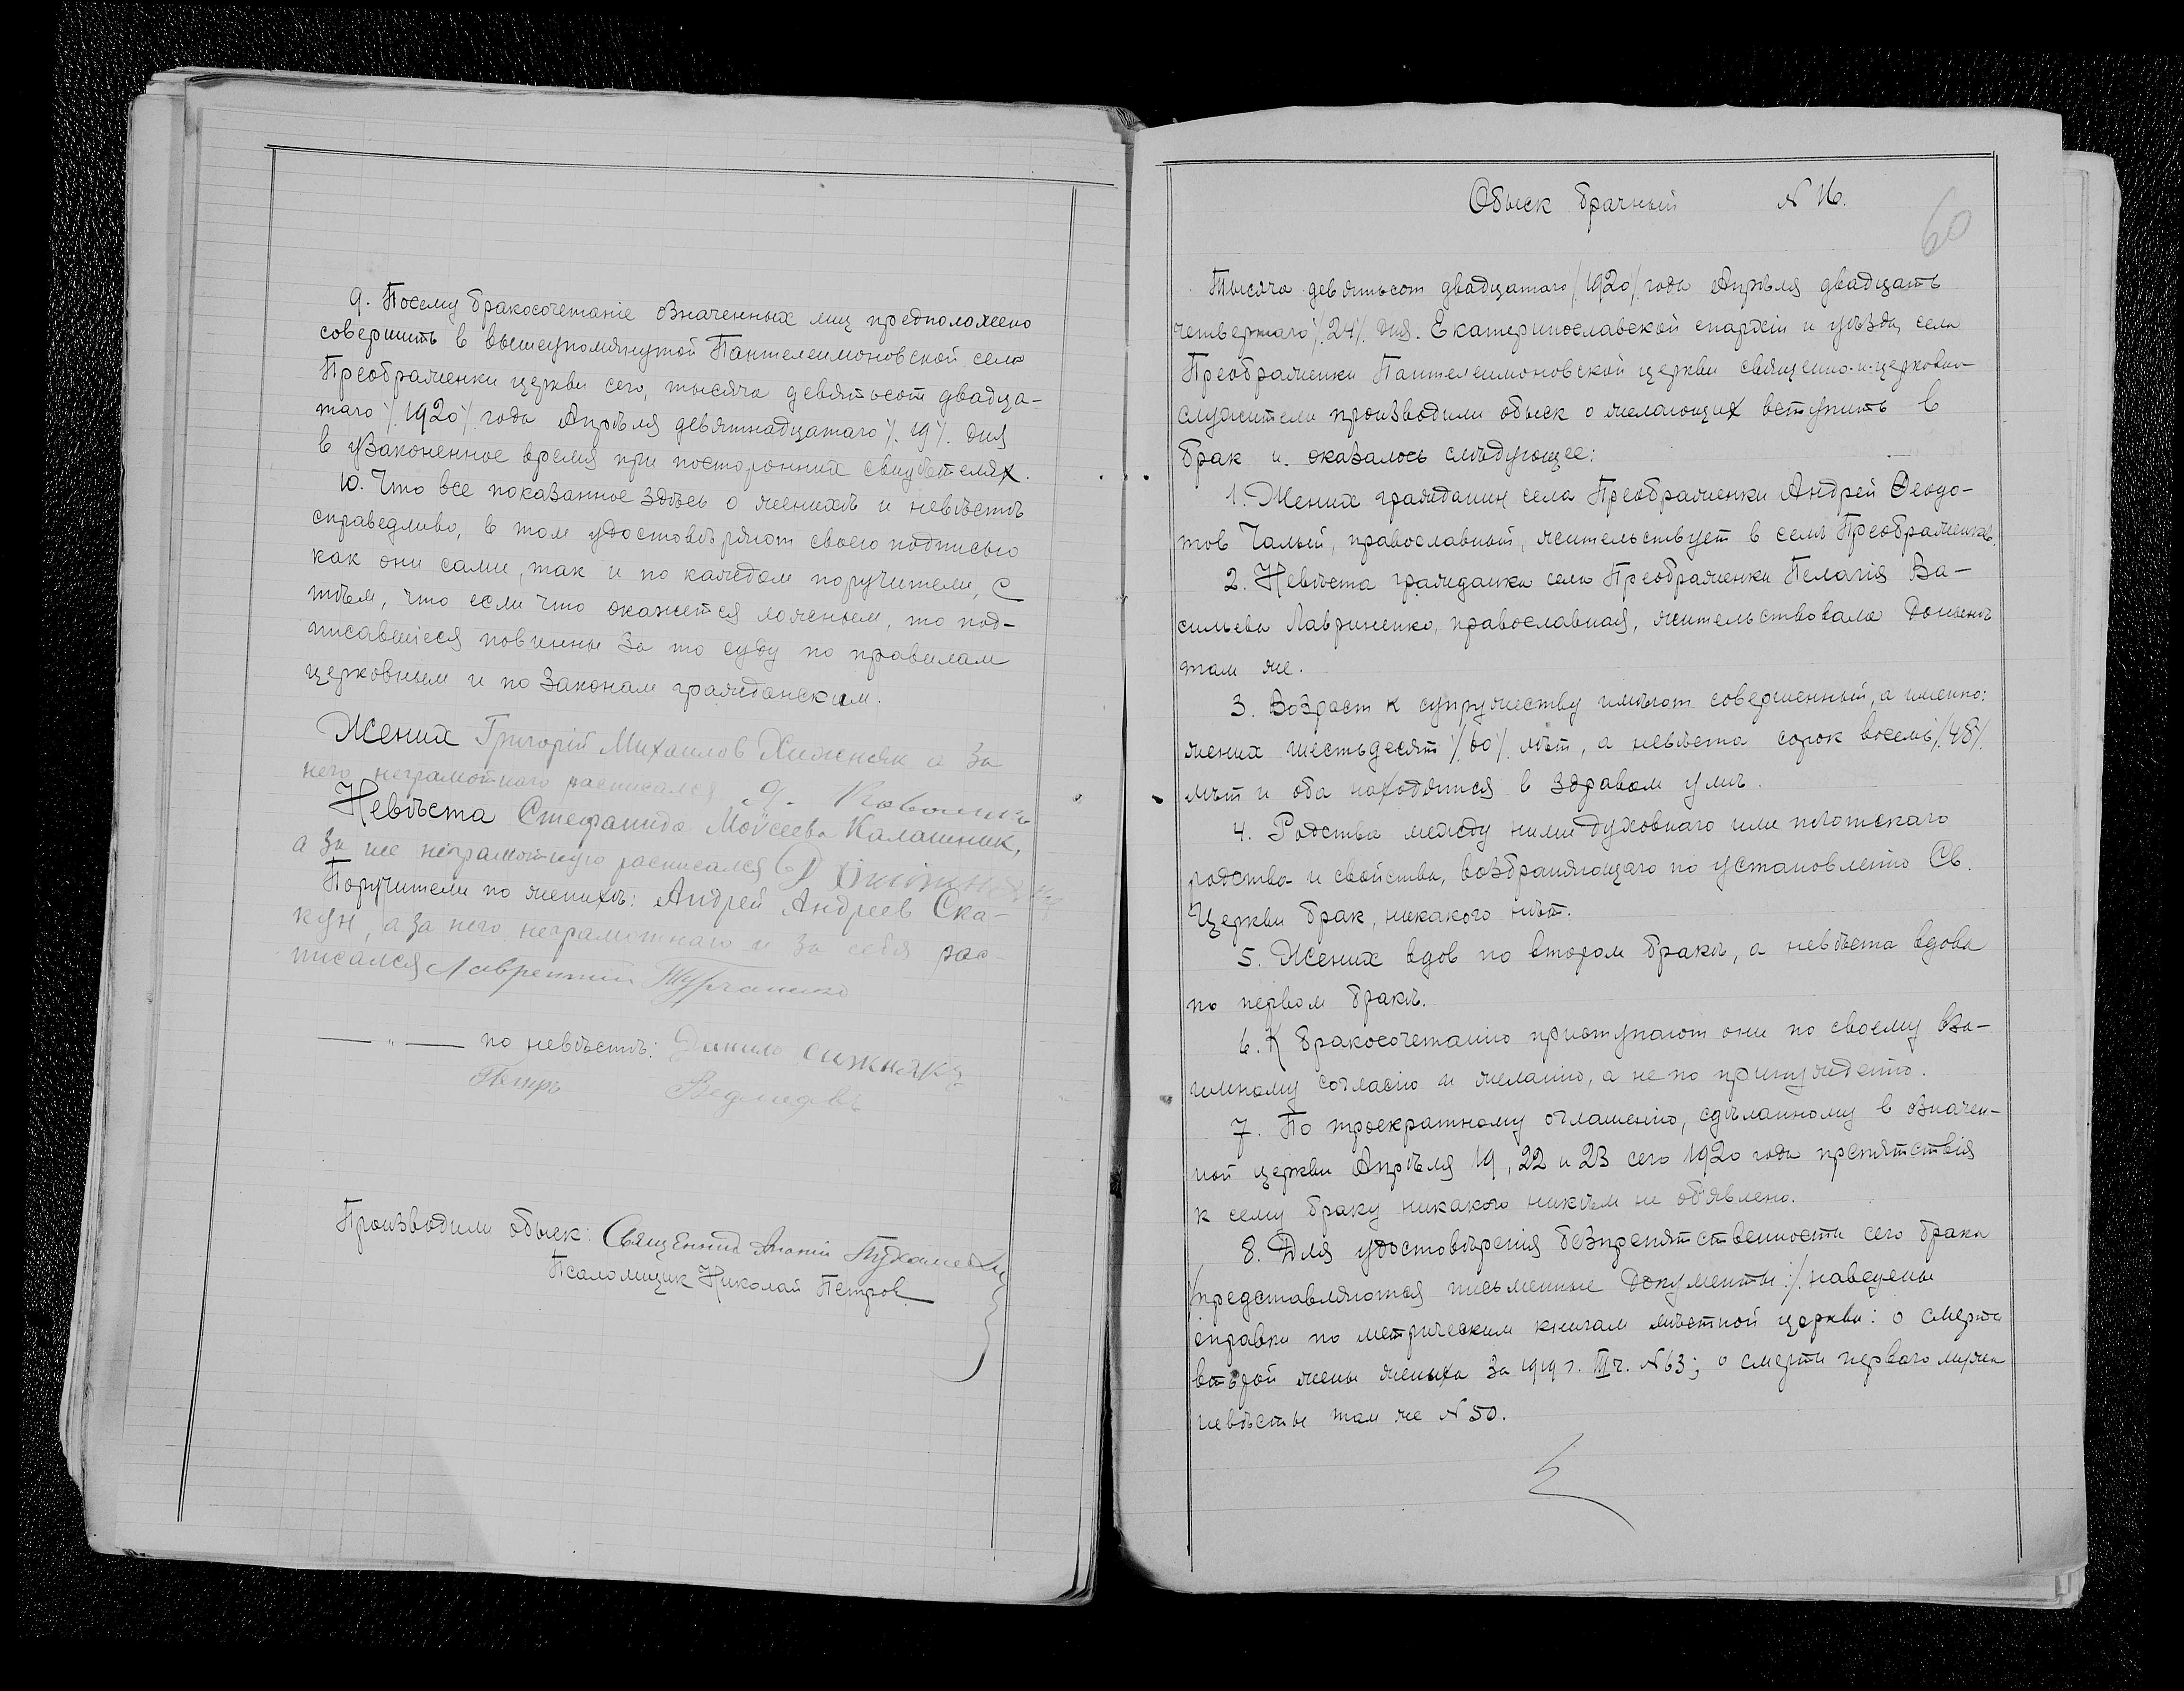 9. Посему бракосочетаніе означенных лиц предположено
совершить в вышеупомянутой Пантелеимоновской села
Преображенки церкви сего, тысяча девятьсот двадца-
таго /.1920/. года Апрѣля девятнадцатаго /.19/. дня
в узаконенное время при посторонних свидѣтелях.
10. Что все показанное здѣсь о женихѣ и невѣстѣ
справедливо, в том удостовѣряют своею подписью
как они сами, так и по каждом поручители, с
тѣм, что если что окажется ложным, то под-
писавшіеся повинны за то суду по правилам
церковным и по законам гражданским.
Жених Григорій Михаилов Хижняк а за
него неграмотнаго расписался
Невѣста Стефанида Моисеева Калашник,
а за нее неграмотную расписался
Поручители по женихѣ: Андрей Андреев Ска-
кун, а за него неграмотнаго и за себя рас-
писался Лаврентий
— " — по невѣстѣ: Данило сижнякъ
Петръ Ведмедевъ
Производили обыск: Священник
Псаломщик Николай Петров
Обыск брачный N 16.
60
Тысяча девятьсот двадцатаго /.1920/. года Апрѣля двадцать
четвертаго /.24/. дня. Екатеринославской епархіи и уѣзда, села
Преображенки Пантелеимоновской церкви священно-и-церковно-
служители производили обыск о желающих вступить в
брак и оказалось слѣдующее:
1. Жених гражданин села Преображенки Андрей Ѳеодо-
тов Чалый, православный, жительствует в селѣ Преображенкѣ.
2. Невѣста гражданка села Преображенки Пелагія Ва-
сильева Лавриненко, православная, жительствовала донынѣ
там же.
3. Возраст к супружеству имѣют совершенный, а именно:
жених шестьдесят /.60/. лѣт, а невѣста сорок восемь /.48/.
лѣт и оба находятся в здравом умѣ.
4. Родства между ними духовнаго или плотскаго
родства и свойства, возбраняющаго по установленію Св.
Церкви брак, никакого нѣт.
5. Жених вдов по втором бракѣ, а невѣста вдова
по первом бракѣ.
6. К бракосочетанію приступают они по своему вза-
имному согласію и желанію, а не по принужденію.
7. По троекратному оглашенію, сдѣланному в означен-
ной церкви Апрѣля 19, 22 и 23 сего 1920 года препятствія
к сему браку никакого никѣм не объявлено.
8. Для удостовѣренія безпрепятственности сего брака
представляются письменные документы:/. наведены
справки по метрическим книгам мѣстной церкви: о смерти
второй жены жениха за 1919 г. III ч. N 63; о смерти перваго мужа
невѣсты там же N 50.